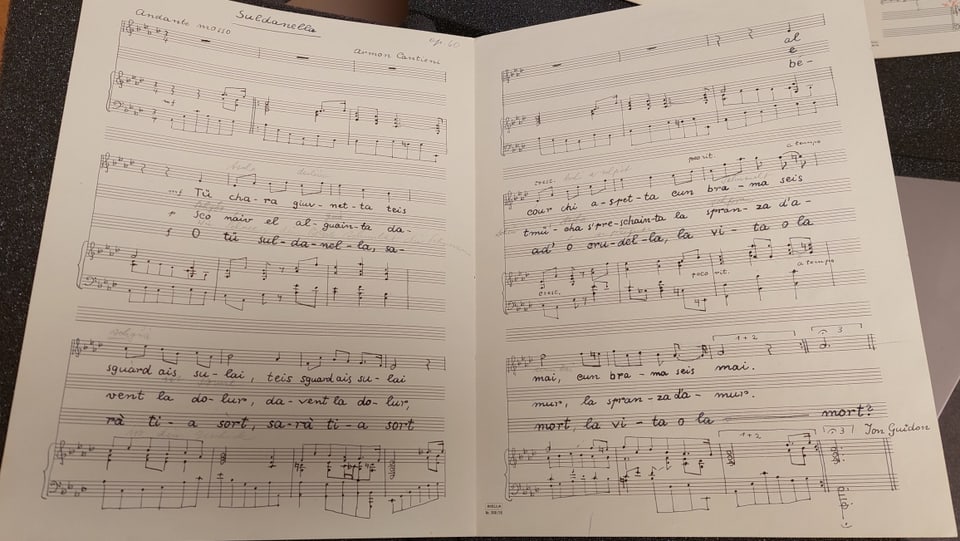 Suldanella
op. 60
Andante mosso
Armon Cantieni
al
e
be-
mf
mf Tü cha-ra giuv-net-ta teis
p Sco naiv el al-guain-ta da-
f O tü sul-da-nel-la, sa-
cresc.
poco rit.
a tempo
cour chi a-spet-ta cun bra-ma seis
tmü-cha s'pre-schain-ta la spran-za d'a-
ad' o cru-del-la, la vi-ta o la
cresc.
poco rit.
a tempo
sguard ais su-lai, teis sguard ais su-lai
vent la do-lur, da-vent la do-lur,
rà ti-a sort, sa-rà ti-a sort
1+2
3
mai, cun bra-ma seis mai.
mur, la spran-za d'a-mur.
mort, la vi-ta o la mort?
1+2
3
Jon Guidon